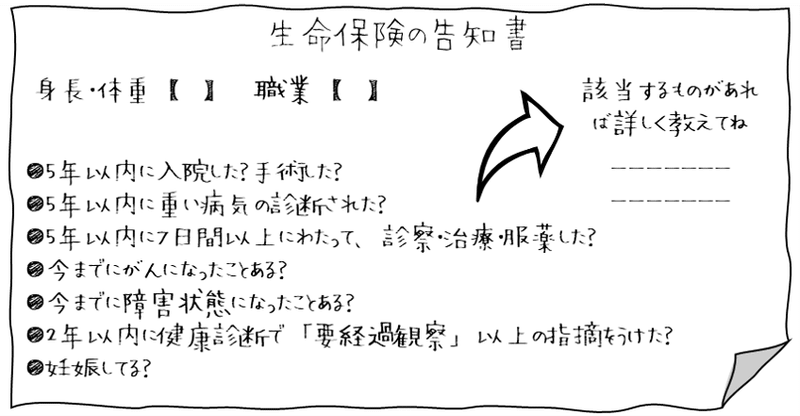 生命保険の告知書
身長・体重【 】 職業【 】
該当するものがあれ
ば詳しく教えてね
●5年以内に入院した?手術した?
●5年以内に重い病気の診断された?
●5年以内に7日間以上にわたって、診察・治療・服薬した?
●今までにがんになったことある?
●今までに障害状態になったことある?
●2年以内に健康診断で「要経過観察」以上の指摘をうけた?
●妊娠してる?